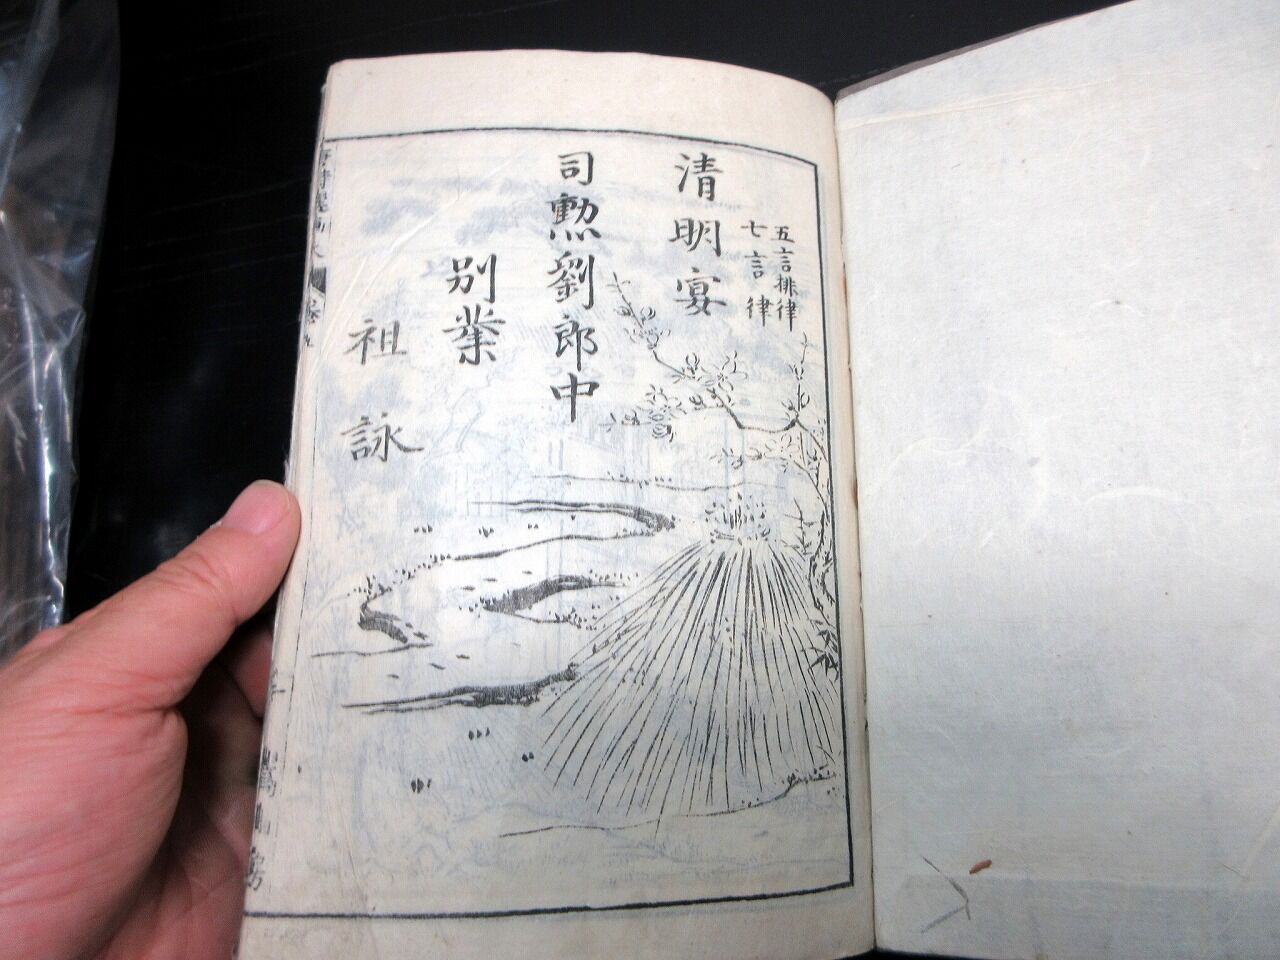 五言排律
七言律
清明宴
司勲劉郎中
別業
祖詠
嵩山房